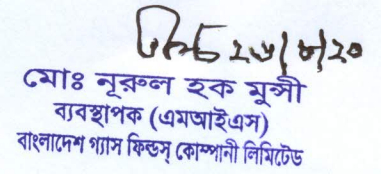 ২৬/৮/২০
মোঃ নূরুল হক মুন্সী
ব্যবস্থাপক (এমআইএস)
বাংলাদেশ গ্যাস ফিল্ডস্ কোম্পানী লিমিটেড